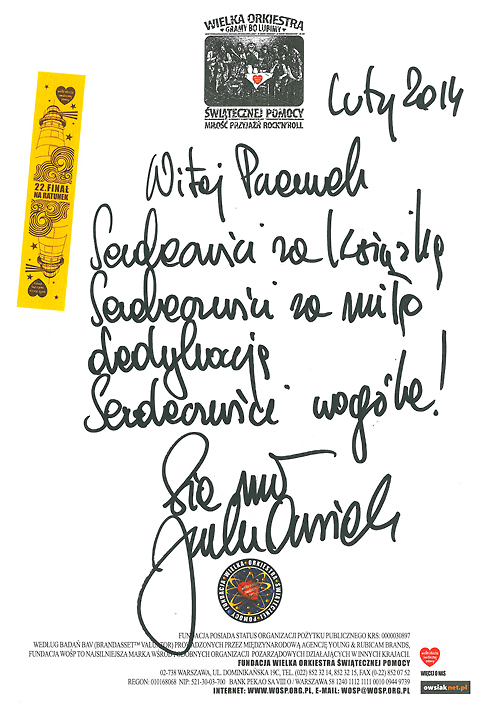 WIELKA ORKIESTRA
GRAMY BO LUBIMY
ŚWIĄTECZNEJ POMOCY
MIŁOŚĆ PRZYJAŹŃ ROCK'N'ROLL
Luty 2014
22.FINAŁ
NA RATUNEK
Witaj Przemek
Serdeczności za książkę
Serdeczności za miłą
dedykację
Serdeczności wogóle!
Sie ma
Jurek Owsiak
FUNDACJA WIELKA ORKIESTRA ŚWIĄTECZNEJ POMOCY
FUNDACJA POSIADA STATUS ORGANIZACJI POŻYTKU PUBLICZNEGO KRS: 0000030897
WEDŁUG BADAŃ BAV (BRANDASSET™ VALUATOR) PROWADZONYCH PRZEZ MIĘDZYNARODOWĄ AGENCJĘ YOUNG & RUBICAM BRANDS,
FUNDACJA WOŚP TO NAJSILNIEJSZA MARKA WŚRÓD PODOBNYCH ORGANIZACJI POZARZĄDOWYCH DZIAŁAJĄCYCH W INNYCH KRAJACH.
FUNDACJA WIELKA ORKIESTRA ŚWIĄTECZNEJ POMOCY
02-738 WARSZAWA, UL. DOMINIKAŃSKA 19C, TEL. (022) 852 32 14, 852 32 15, FAX (0-22) 852 07 52
REGON: 010168068 NIP: 521-30-03-700 BANK PEKAO SA VIII O / WARSZAWA 58 1240 1112 1111 0010 0944 9739
INTERNET: WWW.WOSP.ORG.PL, E-MAIL: WOSP@WOSP.ORG.PL
WIĘCEJ O NAS
owsiaknet.pl